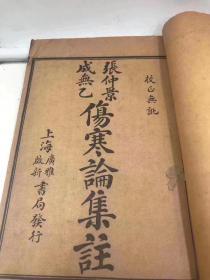 校正無訛
張仲景
成無己
傷寒論集註
上海廣雅啟新書局發行